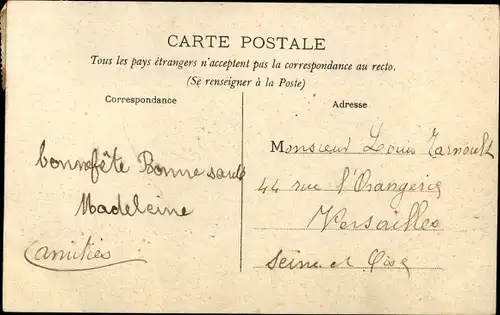 CARTE POSTALE
Tous les pays étrangers n'acceptent pas la correspondance au recto.
(Se renseigner à la Poste)
Correspondance
Adresse
bonne fête Bonne santé
Madeleine
amitiés
Monsieur Louis
44 rue l'Orangerie
Versailles
Seine et Oise